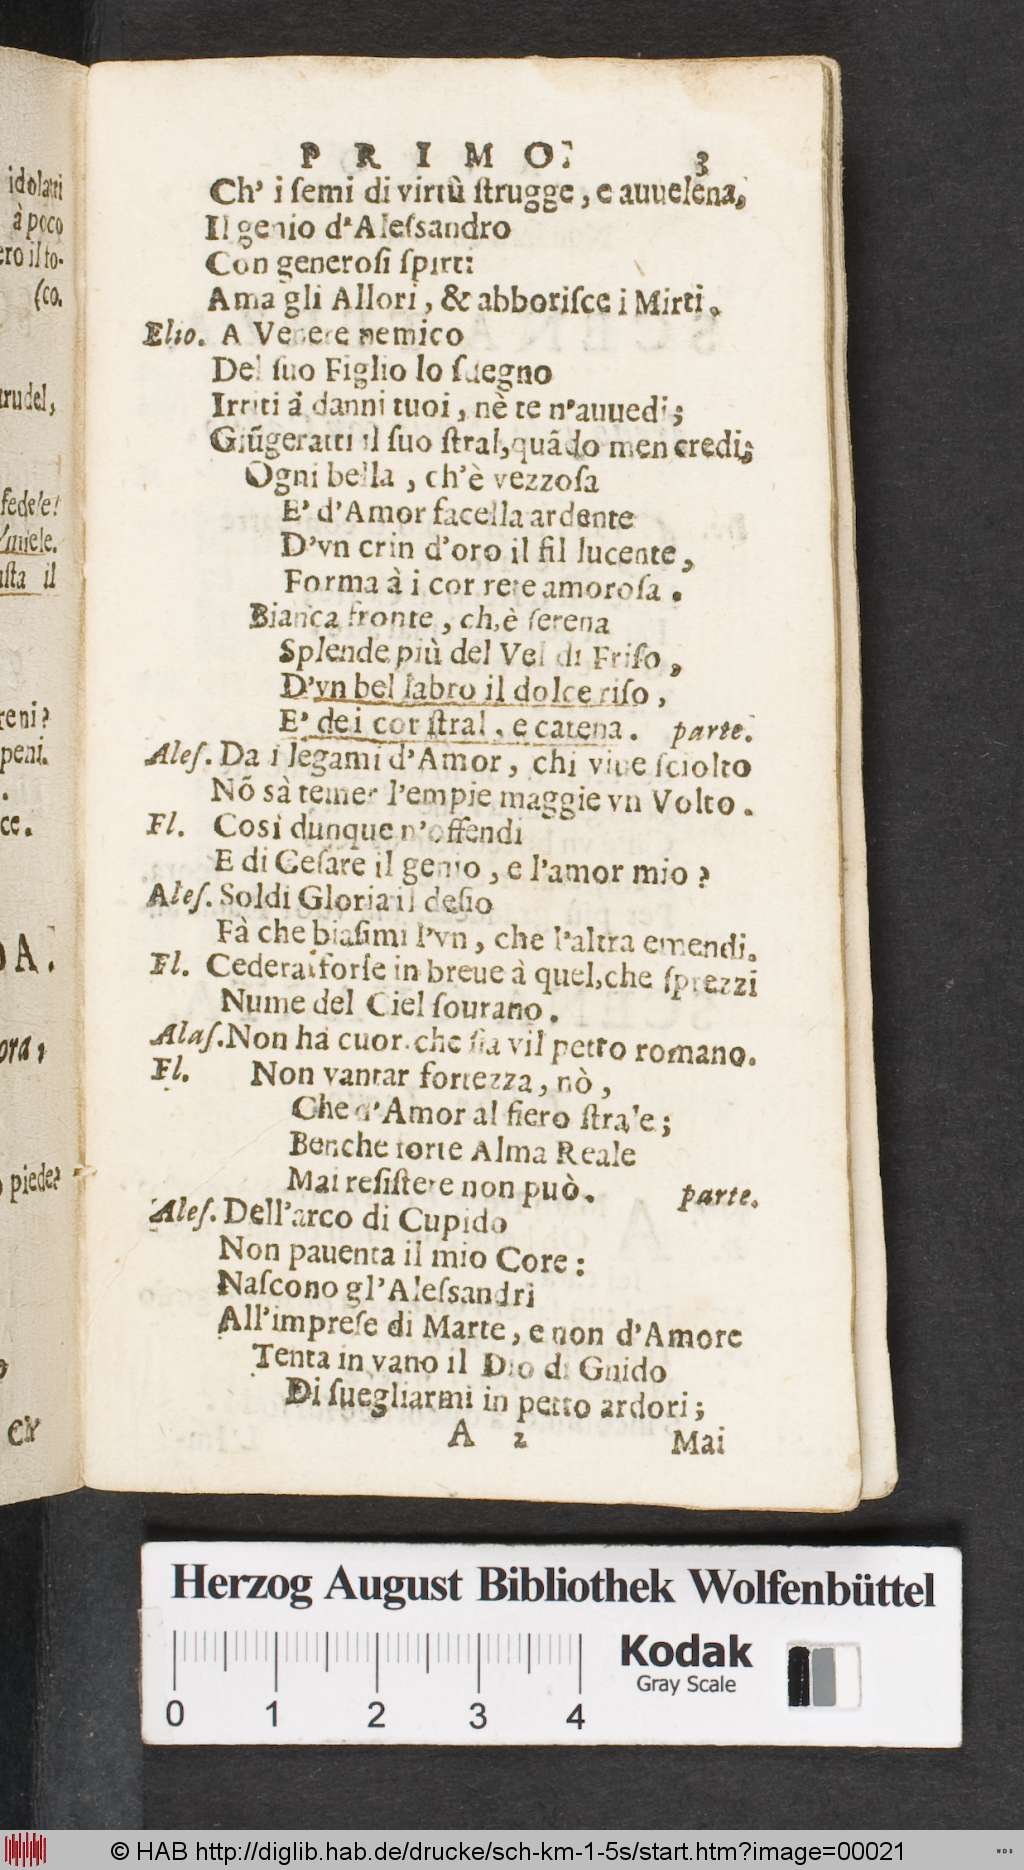 idolatri
à poco
ero il to-
(co.
trudel,
fedele!
usta il
reni?
peni.
ce.
DA.
ora,
piede?
Ch'
PRIMO. 3
Ch' i ſemi di virtù ſtrugge, e auuelena.
Il genio d'Aleſsandro
Con generoſi ſpirti
Ama gli Allori, & abboriſce i Mirti.
Elio. A Venere nemico
Del ſuo Figlio lo ſdegno
Irriti à danni tuoi, nè te n'auuedi;
Giũgeratti il ſuo ſtral, quãdo men credi;
Ogni bella, ch'è vezzoſa
E' d'Amor facella ardente
D'vn crin d'oro il fil lucente,
Forma à i cor rete amoroſa.
Bianca fronte, ch,è ſerena
Splende più del Vel di Friſo,
D'vn bel labro il dolce riſo,
E' dei cor ſtral, e catena. parte.
Aleſ. Da i legami d'Amor, chi viue ſciolto
Nõ sà temer l'empie maggie vn Volto.
Fl. Cosi dunque n'offendi
E di Ceſare il genio, e l'amor mio?
Aleſ. Sol di Gloria il deſio
Fà che biaſimi l'vn, che l'altra emendi.
Fl. Cederai forſe in breue à quel, che ſprezzi
Nume del Ciel ſourano.
Alaſ. Non ha cuor, che ſia vil petto romano.
Fl. Non vantar fortezza, nò,
Che d'Amor al fiero ſtrale;
Benche forte Alma Reale
Mai reſiſtere non può. parte.
Aleſ. Dell'arco di Cupido
Non pauenta il mio Core:
Naſcono gl'Aleſsandri
All'impreſe di Marte, e non d'Amore
Tenta in vano il Dio di Gnido
Di ſuegliarmi in petto ardori;
A 2 Mai
Herzog August Bibliothek Wolfenbüttel
0 1 2 3 4
Kodak
Gray Scale
© HAB http://diglib.hab.de/drucke/sch-km-1-5s/start.htm?image=00021